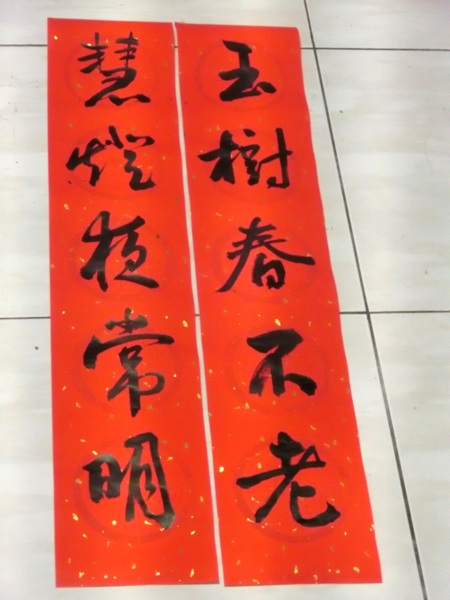 玉樹春不老
慧燈夜常明